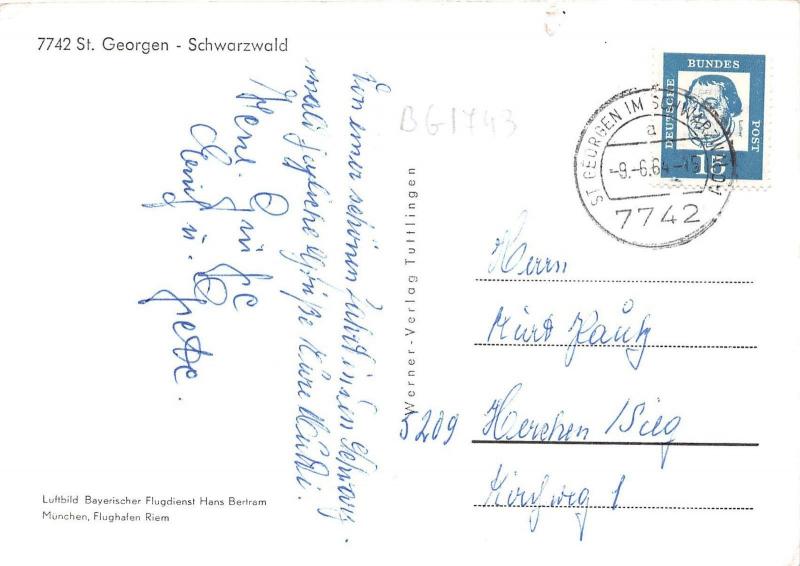 7742 St. Georgen - Schwarzwald
Von einer schönen Fahrt in den Schwarz-
wald herzliche Grüße Eure Mutti.
Viele Grüße
u. Grete.
BG1743
Werner-Verlag Tuttlingen
DEUTSCHE
BUNDES
POST
15
ST. GEORGEN IM SCHWARZWALD
a
-9.-6.64-15
7742
Herrn
Kurt Kautz
5209 Herchen/Sieg
Kirchweg 1
Luftbild Bayerischer Flugdienst Hans Bertram
München, Flughafen Riem